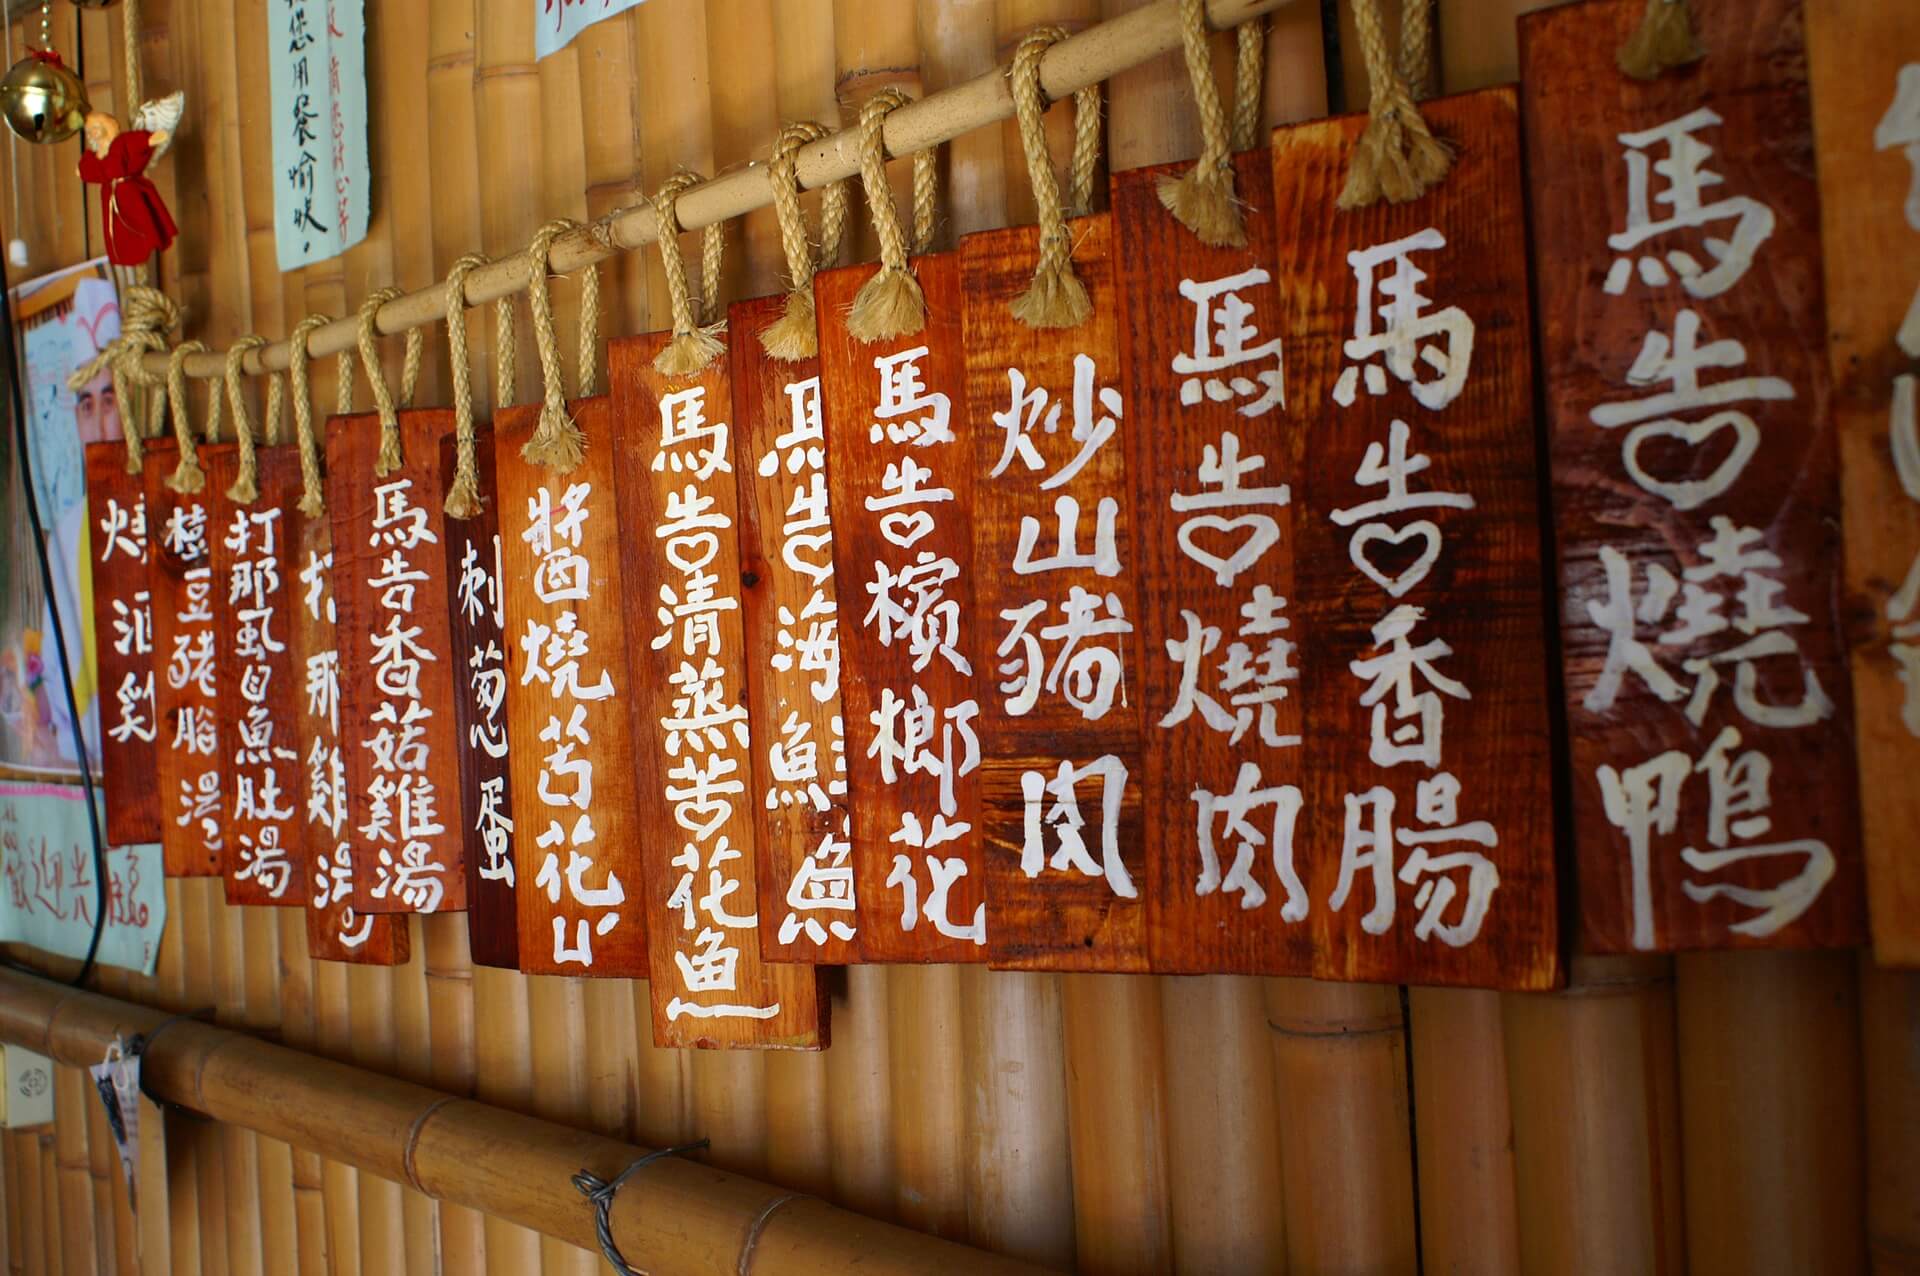 馬告燒鴨
馬告香腸
馬告燒肉
炒山豬肉
馬告檳榔花
馬告海魚
馬告清蒸苦花魚
醬燒
刺葱蛋
馬告香菇雞湯
打那雞湯
打那虱目魚肚湯
豆豬湯
燒酒雞
您用餐愉快。
歡迎光臨